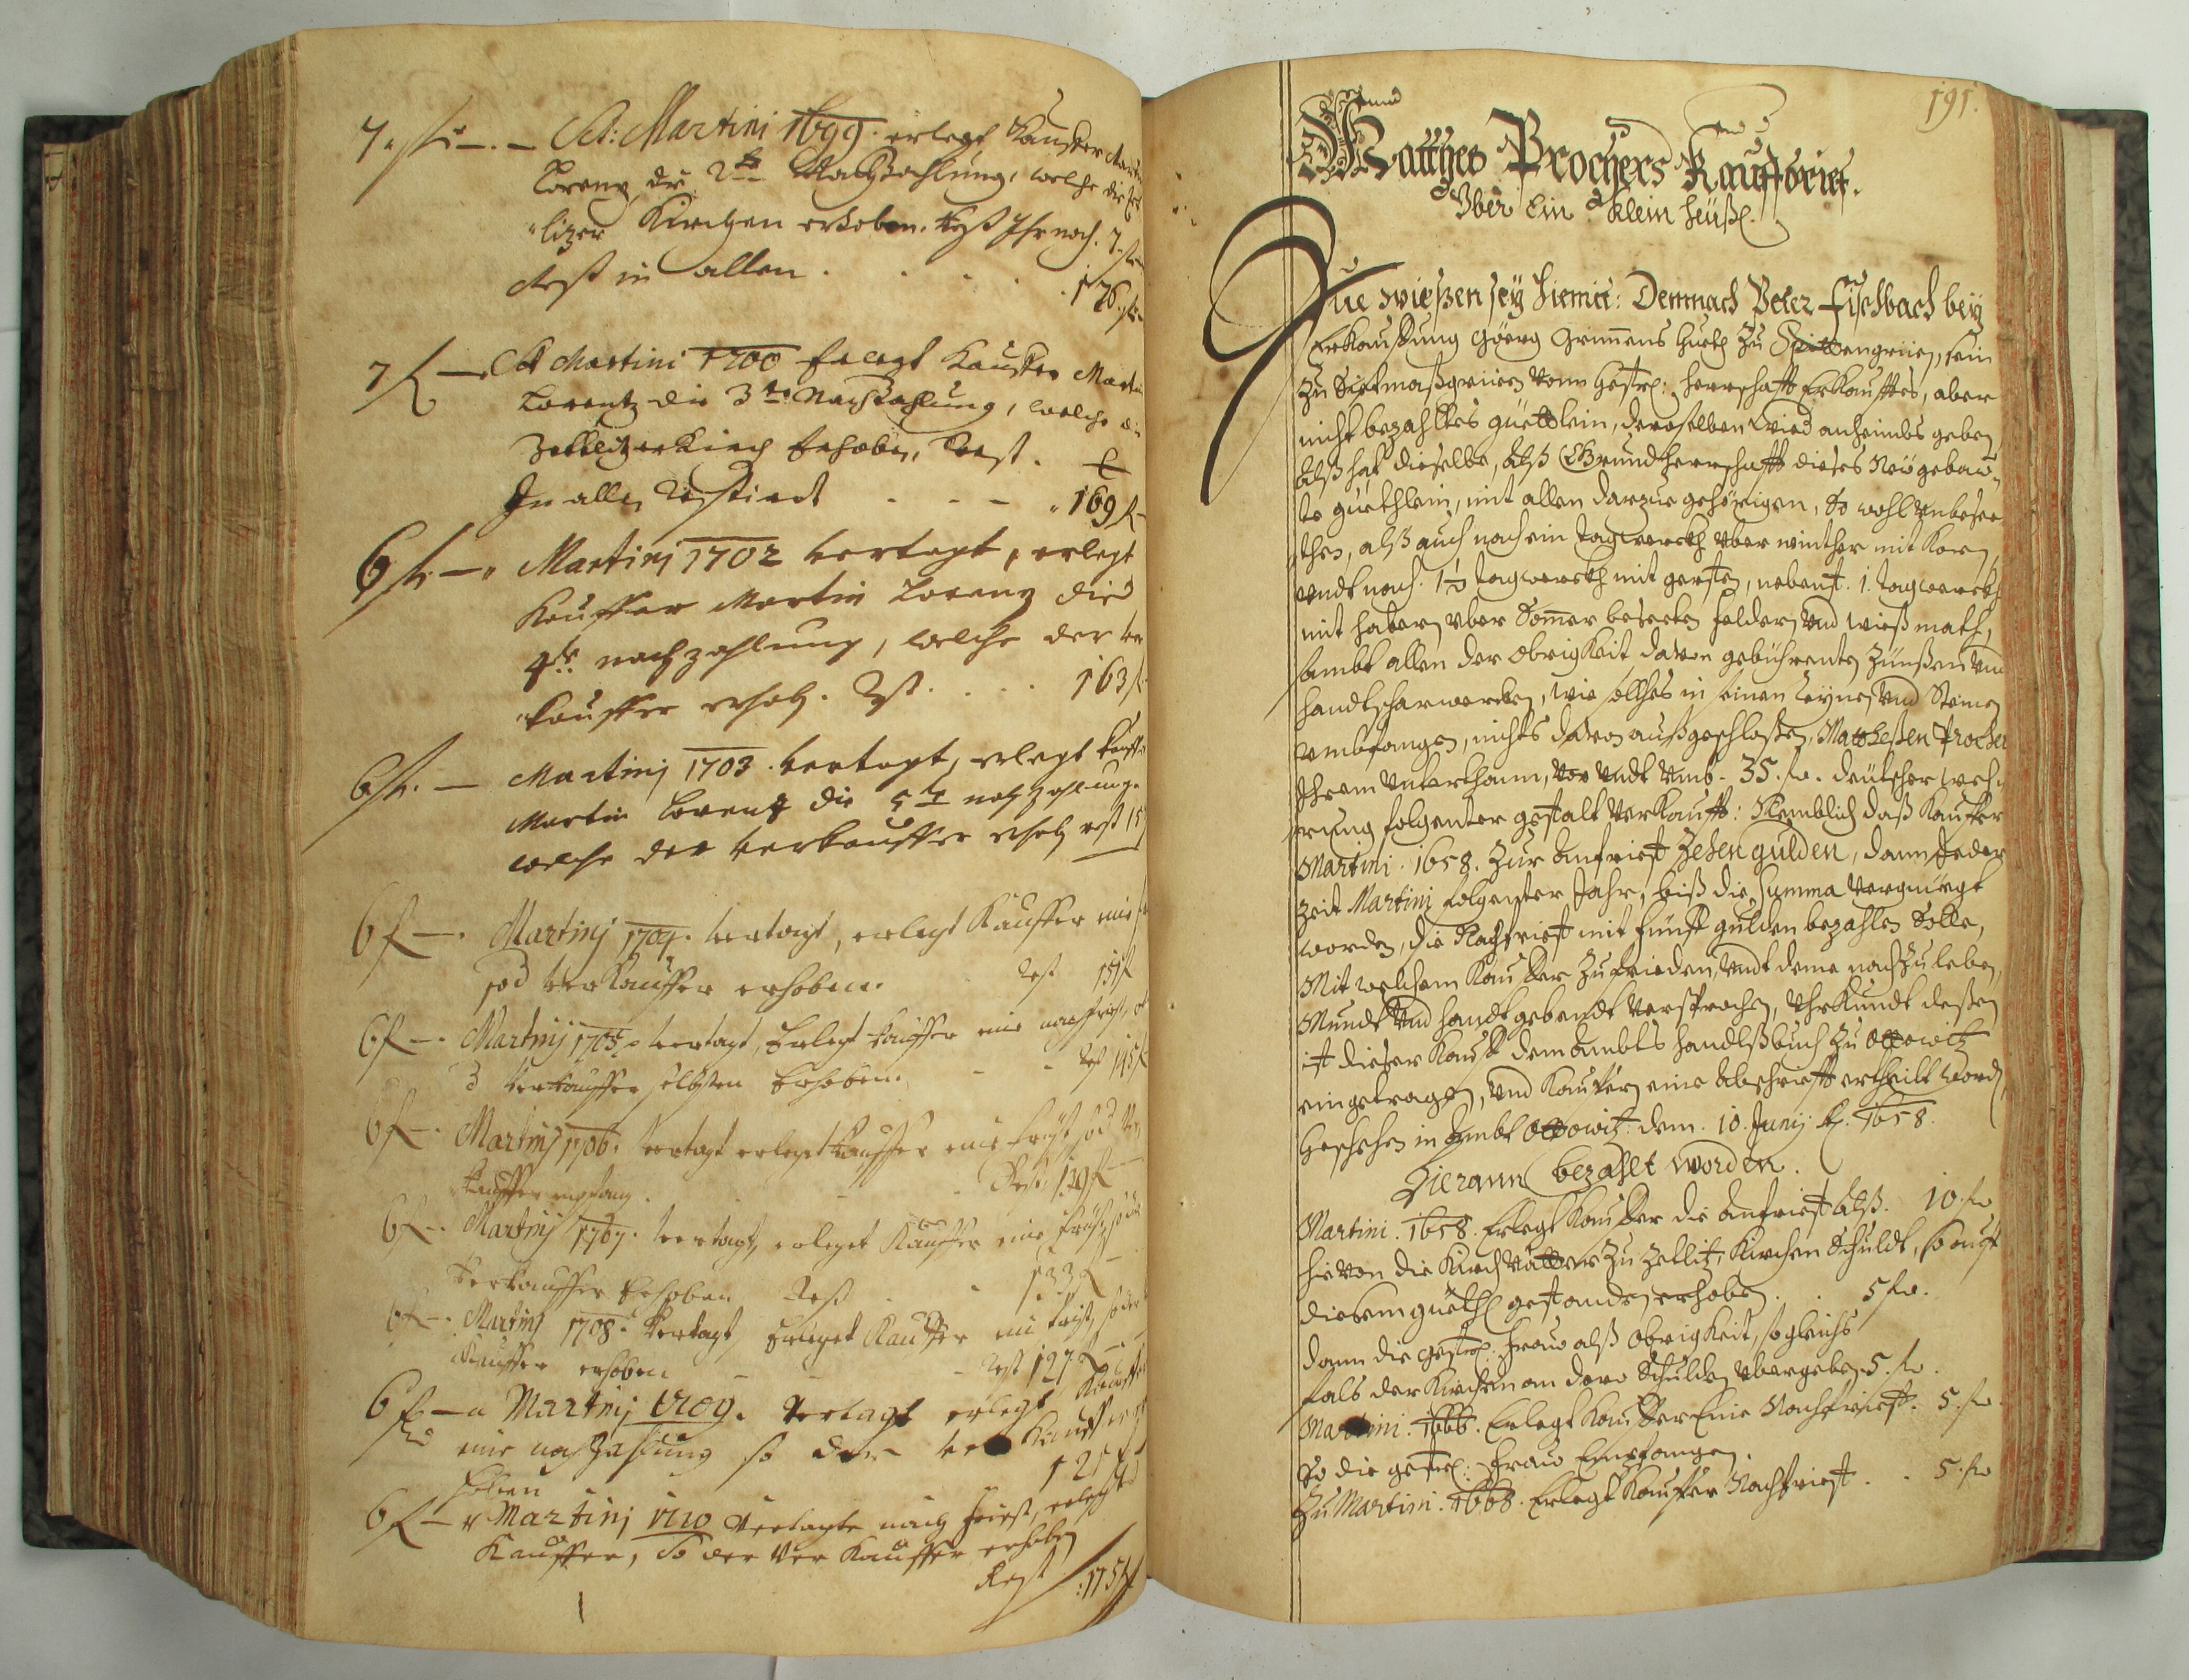 7 f — . — Ad: Martini 1699. erlegt Kauffer
Lorenz die 2te Nachzahlung, welche die
litzer Kirchen erhoben. Rest Ihr noch. 7. f
Rest in allen . . . . . 176. f
7 f — Ad Martini 1700 Erlegt Kauffer Martin
Lorentz die 3te Nachzahlung, welche die
Zettlitzer Kirch Erhoben, Rest.
In allen Restiert - - - 169 f
6 f. — Martini 1702 vertagt, erlegt
Kauffer Martin Lorenz die
4te nachzahlung, welche der ver
kauffer erhob. Rst. . . . 163 f
6 f. — Martinj 1703. vertagt, erlegt Kauffer
Martin Lorenz die 5te nachzahlung.
welche der verkauffer erhob rest 15
6 f — . Martinj 1704. vertagt, erlegt Kauffer eine
so d verKauffer erhoben. Rest 151 f
6 f — . Martinj 1705. vertagt, Erlegt Kauffer eine nachfrist,
d verkauffer selbsten Erhoben. - - Rest 145 f
6 f — . Martinj 1706. vertagt erlegt Kauffer eine frist so d Ver
kauffer empfang. - - Rest. 139 f —
6 f — . Martinj 1707. vertagt, erleget Kauffer eine frist, so der
Verkauffer Erhoben Rest . . 133 f —
6 f — . Martinj 1708. Vertagt Erleget Kauffer eine frist, so der
Kauffer erhoben - - - Rest 127 f —
6 f — Martinj 1709. Vertagt erlegt Kauffer
eine nachzahlung so der ver Kauffer
hoben 121 f
6 f — Martinj 1710 Vertagte nach frist, erlegt
Kauffer, So der Ver Kauffer erhoben
Rest 115 f
191.
Mattheß Prochers Kauffbrief.
Vber Ein Klein heüßl.
Zue wießen sey hiemit: Demnach Peter Fischbach bey
ErKauffung Georg Grimmens Guetl Zu Spittengrün, sein
Zu Dittmaßgrüen vonn Gestr: herrschafft Erkaufftes, aber
nicht bezahltes güettlein, deroselben wied anheimbs geben,
Alß hat dieselbe, alß Grundherrschafft dieses Neügebau-
te güethlein, mit allen darzue gehörigen, So wohl vnbesee
then, alß auch nach ein tagwerckh vber winther mit Korn,
vndt noch. 1½ tagwerckh mit gersten, nebenst. 1. tagwerckh
mit habern vber Sommer beseeten felder vnd wießmath,
sambt allen der ObrigKeit davon gebührenten Zünßen vnd
handtscharwercken, wie sollches in seinen reynen vnd Steinen
vmbfangen, nichts davon außgeschloßen, Matheßen Procher
ihrem vnterthann, vor vndt vmb. 35. fl. deütscher weh-
rung folgenter gestalt verkaufft: Nemblich daß Kauffer
Martini. 1658. Zur Anfrist Zehen gulden, dann Jeder
Zeit Martini folgenter Jahr, biß die Summa vergnüegt
worden, die Nachfrist mit fünff gulden bezahlen Solle,
Mit welchem Kauffer Zufrieden, vndt deme nachzuleben,
Mundt vnd handtgebendt versprochen, Vhrkundt deßen
ist dieser Kauff dem Ambts handlßbuch Zu Ottowitz
eingetragen, vnd Kauffern eine Abschrifft ertheilt word,
Geschehen in Ambt Ottowitz. dem. 10. Junij A. 1658.
Hierann bezahlt worden.
Martini. 1658. Erlegt Kauffer die Anfrist Alß. 10. fl
hievon die Kirchvätter Zu Zettlitz, Kirchen Schuldt, so auff
diesem guethl gestanden erhoben. . 5 fl.
dann die Gestr. Fraw alß ObrigKeit, so gleichs
fals der Kirchen an dero Schulden vbergeben 5. fl.
Martini. 1666. Erlegt Kauffer Eine Nachfrist. 5. fl
So die gestr: Fraw Empfangen.
Zu Martini. 1668. Erlegt Kauffer Nachfrist. . 5. fl